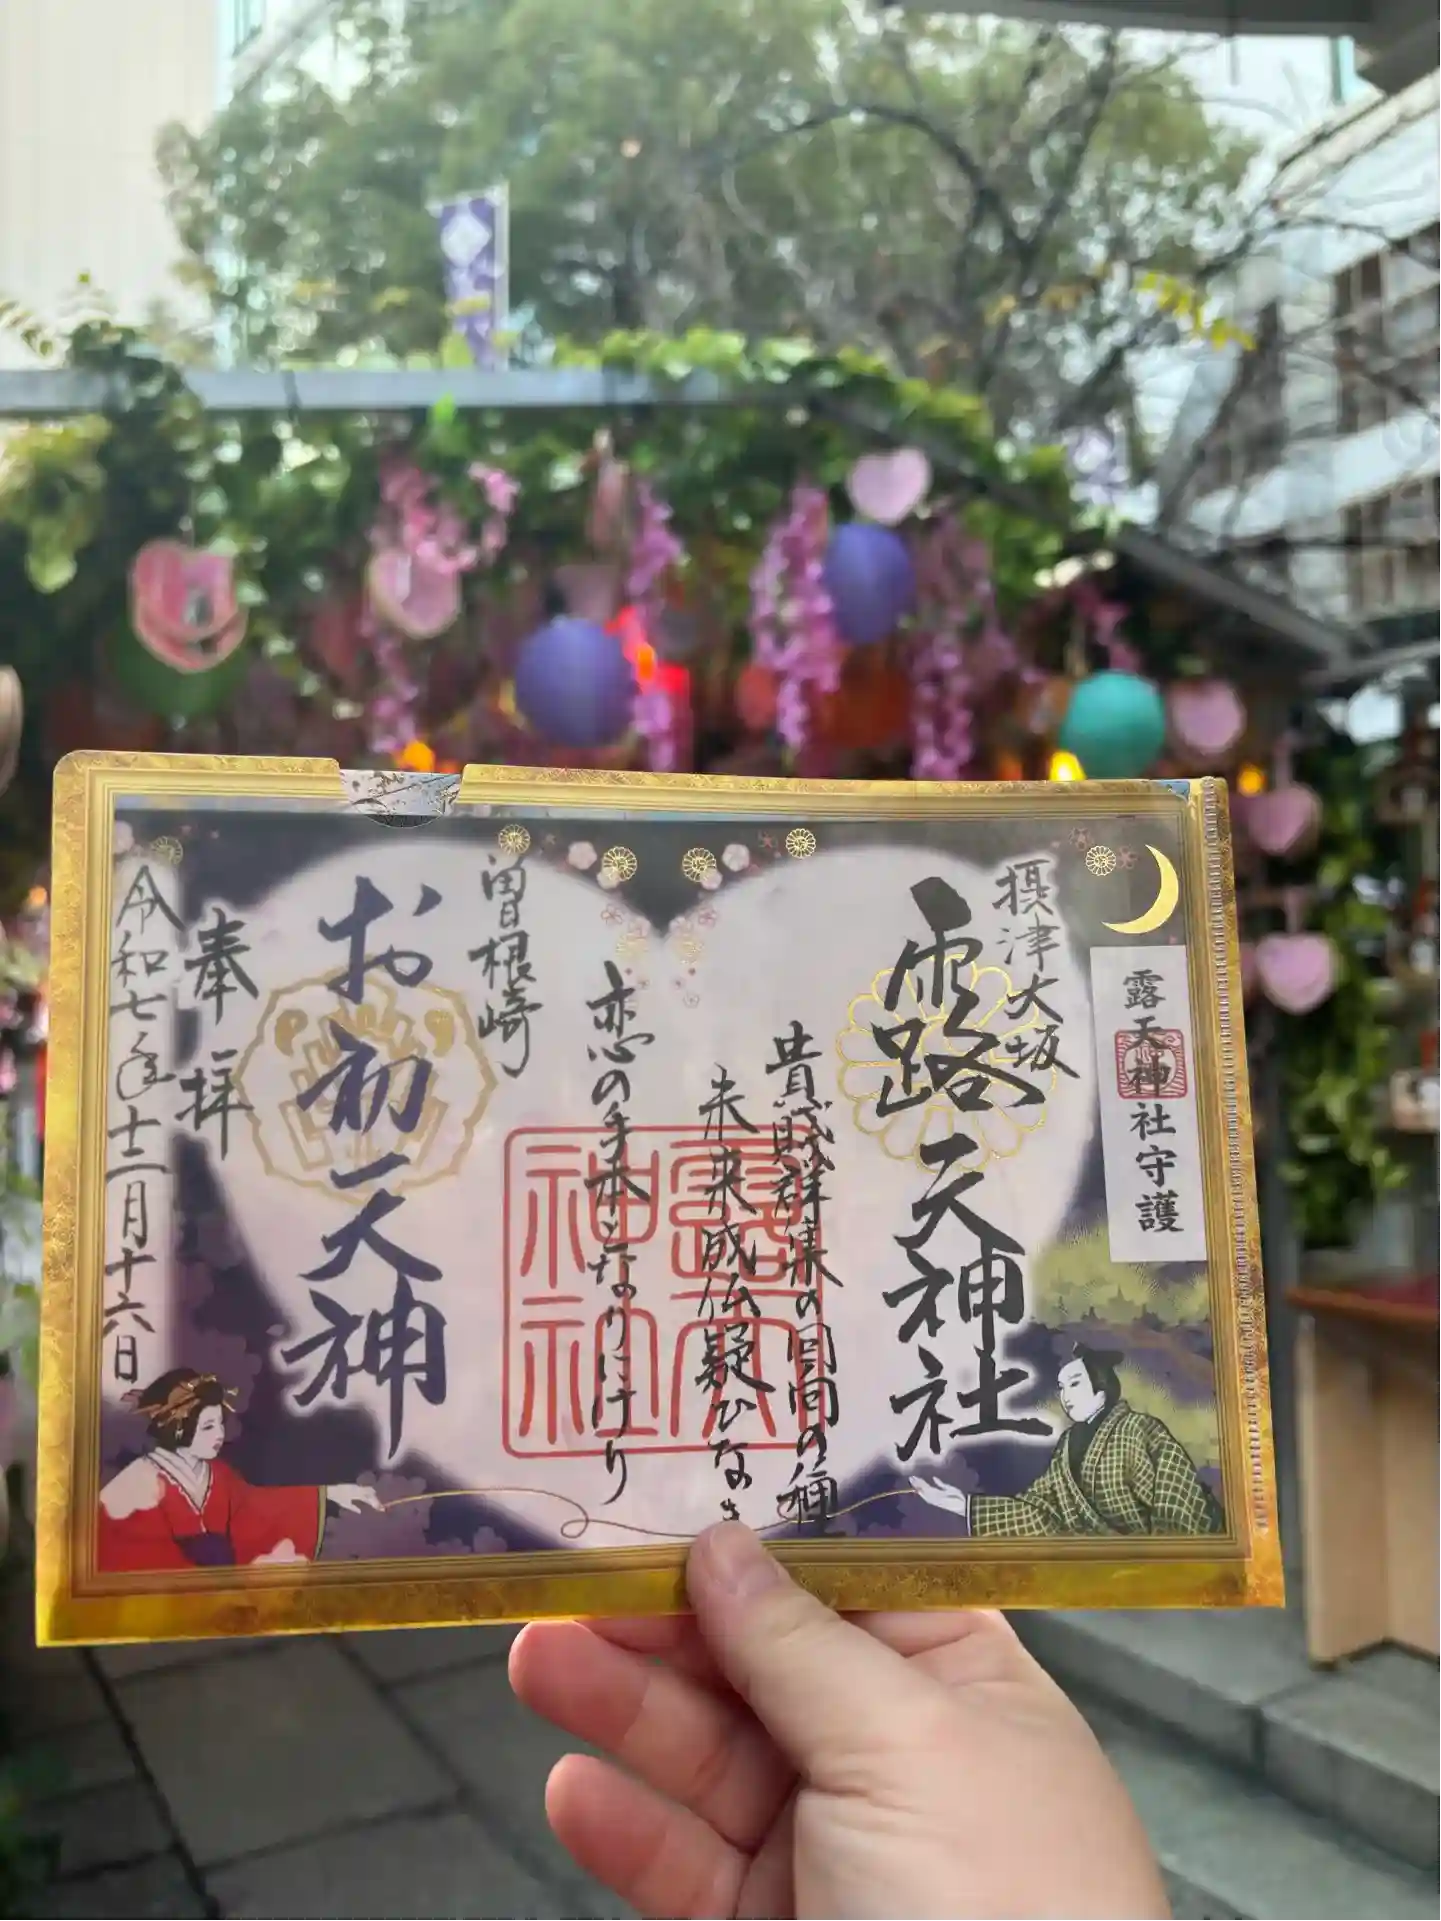 露天神社守護
摂津大坂
露天神社
貴賎群集の回向の種
未来成仏疑ひなき
恋の手本となりにけり
曽根崎
お初天神
奉拝
令和七年十二月十六日
露天神社